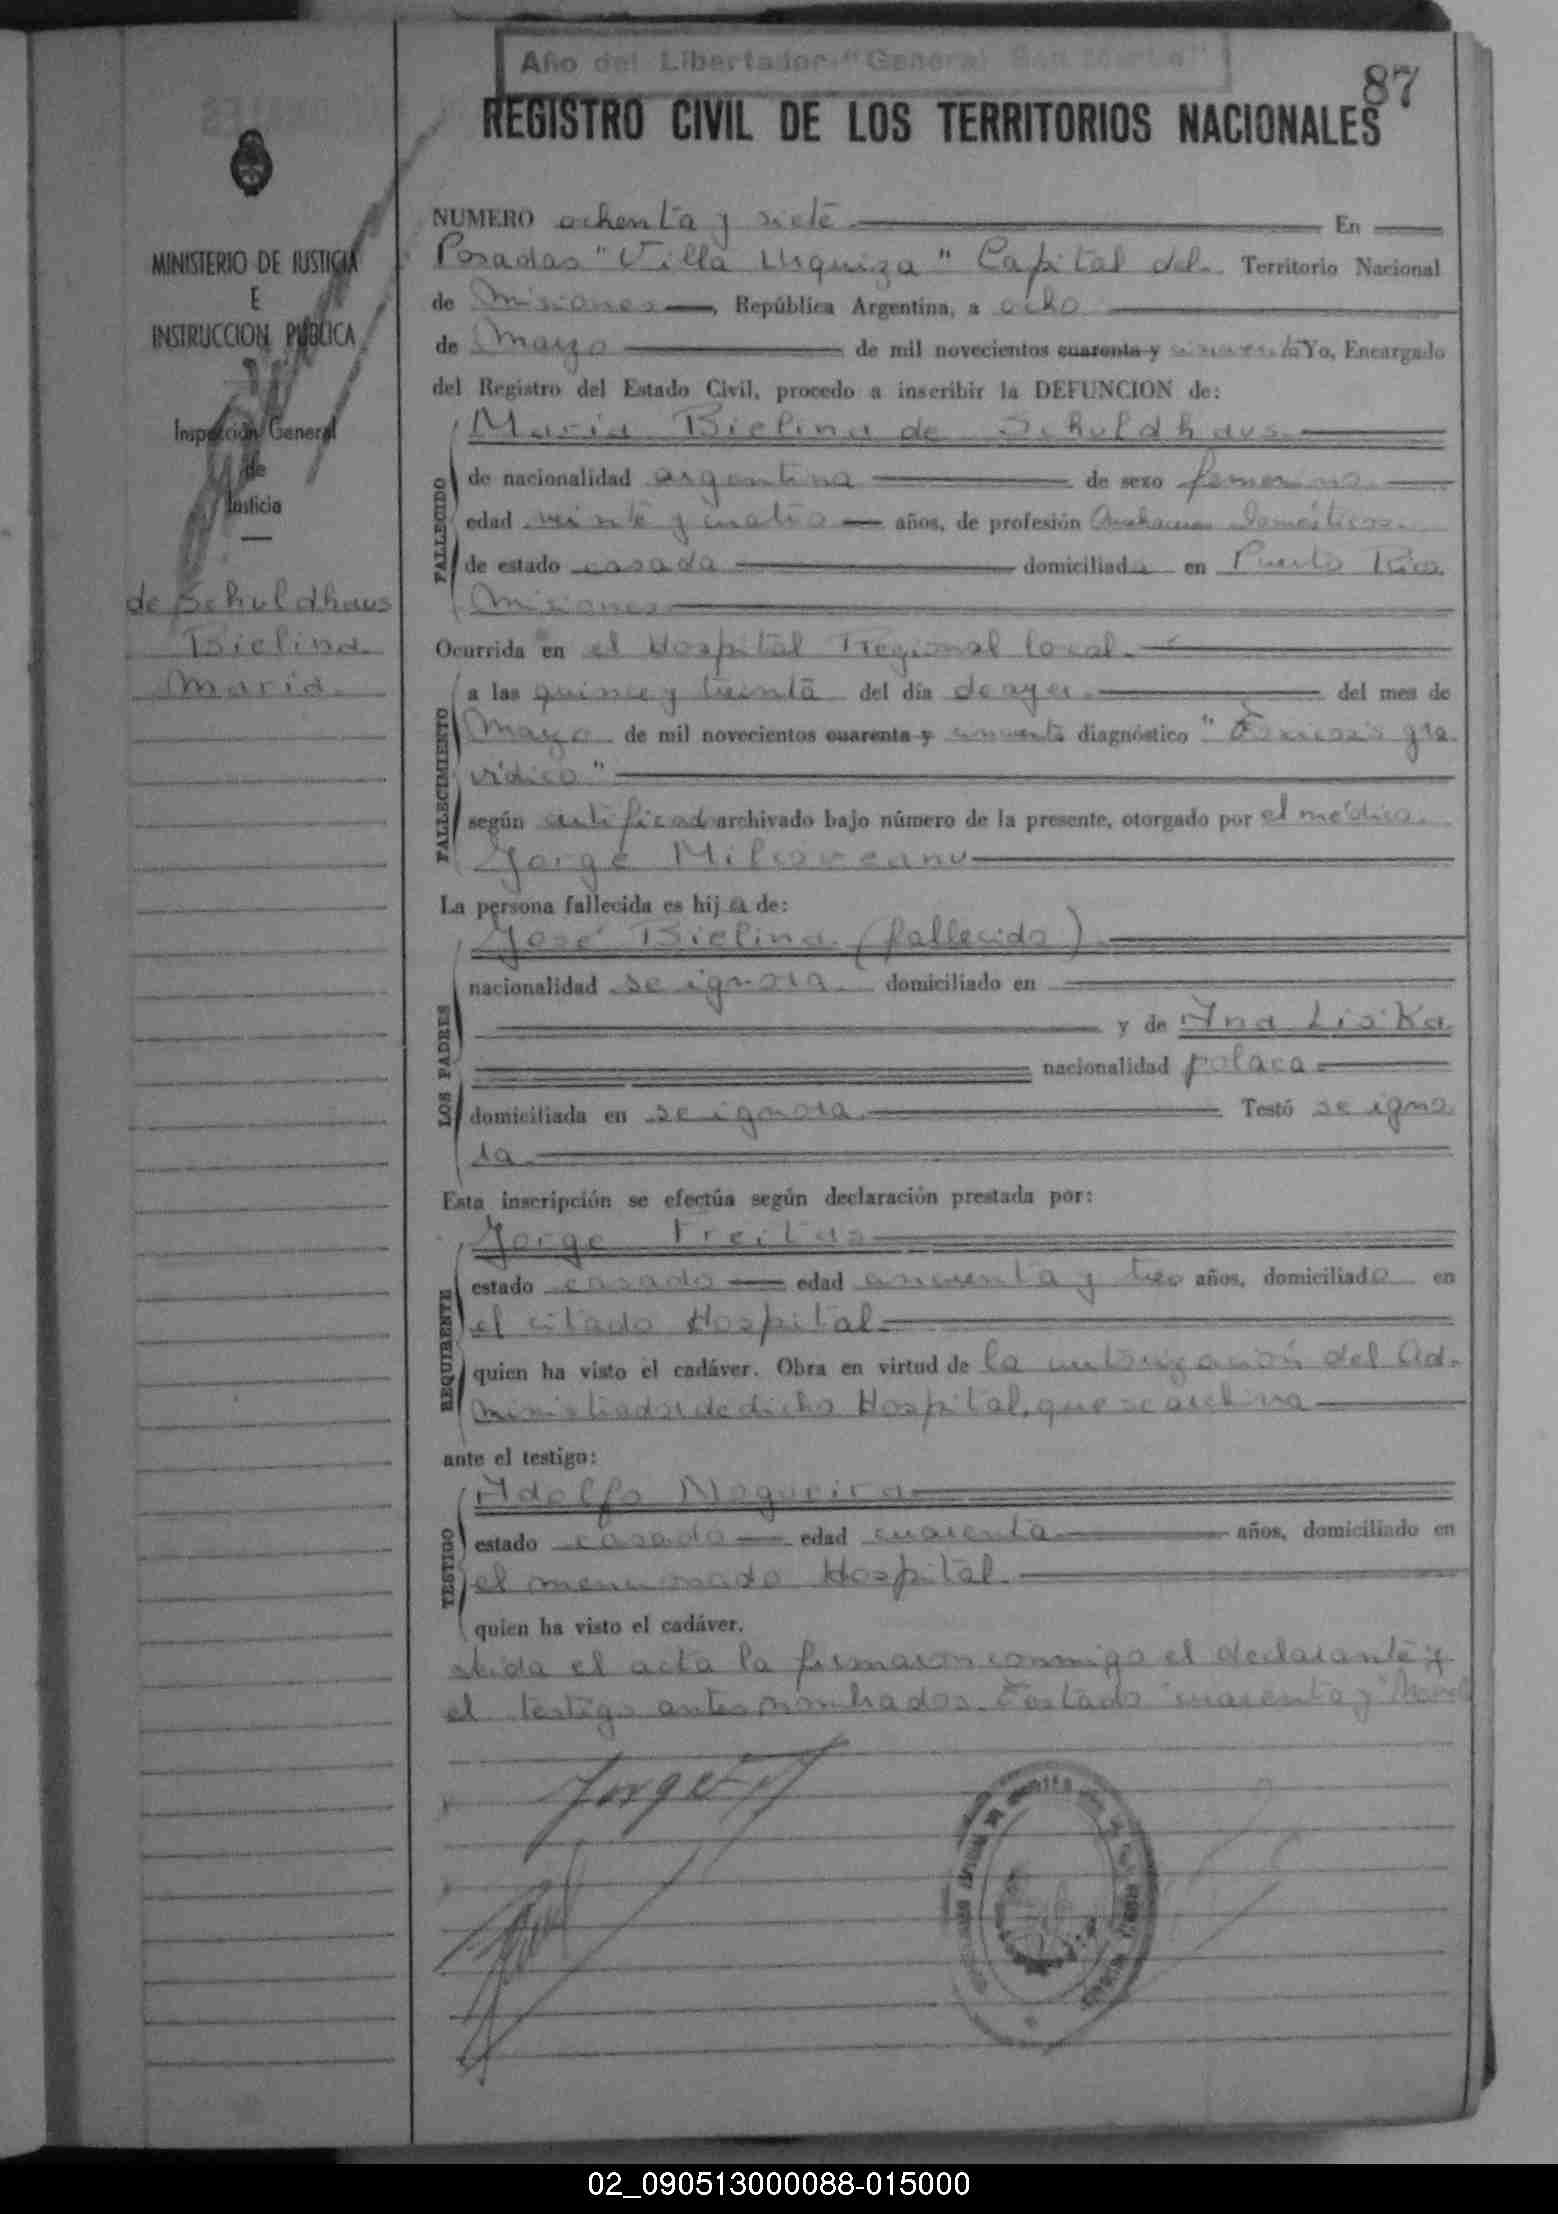 Año del Libertador "General San Martin"
87
REGISTRO CIVIL DE LOS TERRITORIOS NACIONALES
MINISTERIO DE JUSTICIA
E
INSTRUCCION PUBLICA
Inspección General
de
Justicia
de Schuldhaus
Bielina
Maria
NUMERO ochenta y siete En
Posadas "Villa Urquiza" Capital del Territorio Nacional
de Misiones, República Argentina, a ocho
de Mayo de mil novecientos cuarenta y cincuenta Yo, Encargado
del Registro del Estado Civil, procedo a inscribir la DEFUNCION de:
Maria Bielina de Schuldhaus
FALLECIDO
de nacionalidad argentina de sexo femenino
edad veinte y cuatro años, de profesión Quehaceres domésticos
de estado casada domiciliada en Puerto Rico
Misiones
Ocurrida en el Hospital Regional local.
FALLECIMIENTO
a las quince y treinta del día de ayer del mes de
Mayo de mil novecientos cuarenta y cincuenta diagnóstico " gra
vídico"
según certificado archivado bajo número de la presente, otorgado por el médico
Jorge Milcoveanu
La persona fallecida es hija de:
LOS PADRES
José Bielina (fallecido)
nacionalidad se ignora domiciliado en
y de Ana Liska
nacionalidad polaca
domiciliada en se ignora Testó se igno
ra
Esta inscripción se efectúa según declaración prestada por:
REQUIRENTE
Jorge Freitas
estado casado edad cincuenta y tres años, domiciliado en
el citado Hospital
quien ha visto el cadáver. Obra en virtud de la autorización del Ad-
ministrador de dicho Hospital, que se archiva
ante el testigo:
TESTIGO
Adolfo Nogueira
estado casado edad cuarenta años, domiciliado en
el mencionado Hospital.
quien ha visto el cadáver.
Leida el acta la firmaron conmigo el declarante y
el testigo antes nombrados. Testado "cuarenta y"
Jorge
02_090513000088-015000